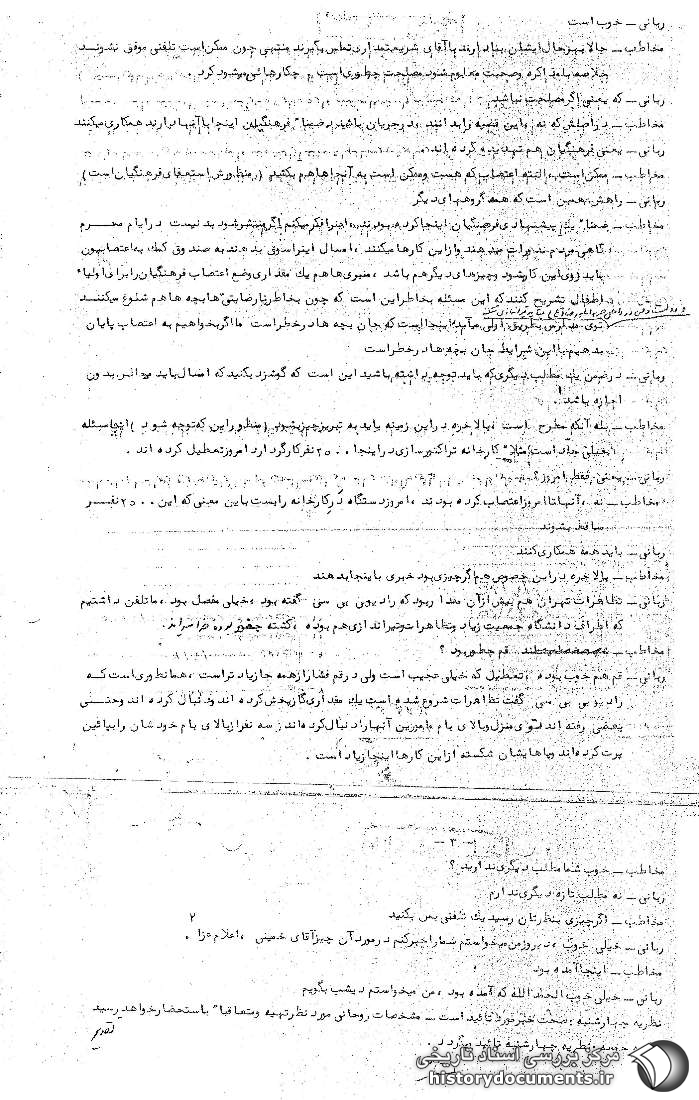 ربانی ـ خوب است
مخاطب ـ حالا بهرحال ایشان بنا دارند با آقای شریعتمداری تماس بگیرند منتهی چون ممکن است تلفنی موفق نشوند
خلاصه باید مذاکره و صحبت معلوم شود مصلحت چطوری است و چکارهائی میشود کرد .
ربانی ـ که یعنی اگر مصلحت نباشد
مخاطب ـ در اصلش که نه ، این قضیه را بدانند و در جریان باشند ، ضمنا" فرهنگیان اینجا با آنها دارند همکاری میکنند
ربانی ـ یعنی فرهنگیان هم تهدید کرده اند
مخاطب ـ ممکن است ، البته اعتصاب که هست و ممکن است به آنجاها هم بکشد ( منظورش استعفای فرهنگیان است )
ربانی ـ راهش همین است که همه گروههای دیگر
مخاطب ـ ضمنا" یک پیشنهادی فرهنگیان اینجا کرده بودند ، اینرا فکر میکنم اگر منتشر شود بد نیست در ایام محرم
گاهی مردم نذورات میدهند و از این کارها میکنند ، امسال اینرا سوق بدهند به صندوق کمک به اعتصابیون
باید روی این کار شود و چیزهای دیگر هم باشد ، منبری ها هم یک مقداری وضع اعتصاب فرهنگیان را برای اولیاء
اطفال تشریح کنند که این مسئله بخاطر این است که چون بخاطر نارضایتی ها بچه ها هم شلوغ میکنند
توی مدارس بطریق اولی میآید اینجا است که جان بچه ها در خطر است ما اگر بخواهیم به اعتصاب پایان
بدهیم با این شرایط جان بچه ها در خطر است
ربانی ـ در ضمن یک مطلب دیگری که باید توجه داشته باشید این است که گوشزد بکنید که امسال باید بدون
اجازه باشد .
مخاطب ـ بله آنکه مطرح است ، بالاخره در این زمینه باید به تبریز چیز بشود ( منظور این که توجه شود ) اینجا مسئله
خیلی حاد است مثلا" کارخانه تراکتورسازی در اینجا ۲۵۰۰ نفر کارگر دارد امروز تعطیل کرده اند .
ربانی ـ یعنی فقط امروز ؟
مخاطب ـ نه ، آنها تا امروز اعتصاب کرده بودند ، امروز دستگاه در کارخانه را بست باین معنی که این ۲۵۰۰ نفر
ساقط بشوند
ربانی ـ باید همه همکاری کنند
مخاطب ـ بالاخره در این خصوص هم اگر چیزی بود خبری باینجا بدهند
ربانی ـ تظاهرات تهران هم بیش از آن مقدار بود که رادیو بی بی سی گفته بود ، خیلی مفصل بود ، ما تلفن داشتیم
که اطراف دانشگاه جمعیت زیاد و تظاهرات و تیراندازی هم بوده ، کشته
مخاطب ـ قم چطور بود ؟
ربانی ـ قم هم خوب بوده ، تعطیل که خیلی عجیب است ولی در قم فشار از همه جا زیادتر است ، همانطوری است که
رادیو بی بی سی گفت تظاهرات شروع شده است یک مقداری گاز پخش کرده اند و دنبال کرده اند و حتی
بعضی رفته اند توی منزل و بالای بام مامورین آنها را دنبال کرده اند و سه نفر از بالای بام خودشان را بپائین
پرت کرده اند و پاهایشان شکسته از این کارها اینجا زیاد است .
ـ ۳ ـ
مخاطب ـ خوب شما مطلب دیگری ندارید ؟
ربانی ـ نه مطلب تازه دیگری ندارم
مخاطب ـ اگر چیزی بنظرتان رسید یک تلفنی بمن بکنید
ربانی ـ خیلی خوب ، دیروز من میخواستم شما را خبر کنم در مورد آن چیز آقای خمینی ، اعلام عزا .
مخاطب ـ اینجا آمده بود
ربانی ـ خیلی خوب الحمدالله که آمده بود ، من میخواستم دیشب بگویم
نظریه چهارشنبه . صحت خبر مورد تائید است ـ مشخصات روحانی مورد نظر تهیه و متعاقبا" باستحضار خواهد رسید
نظریه چهارشنبه تائید میگردد .
مرکز بررسی اسناد تاریخی
historydocuments.ir